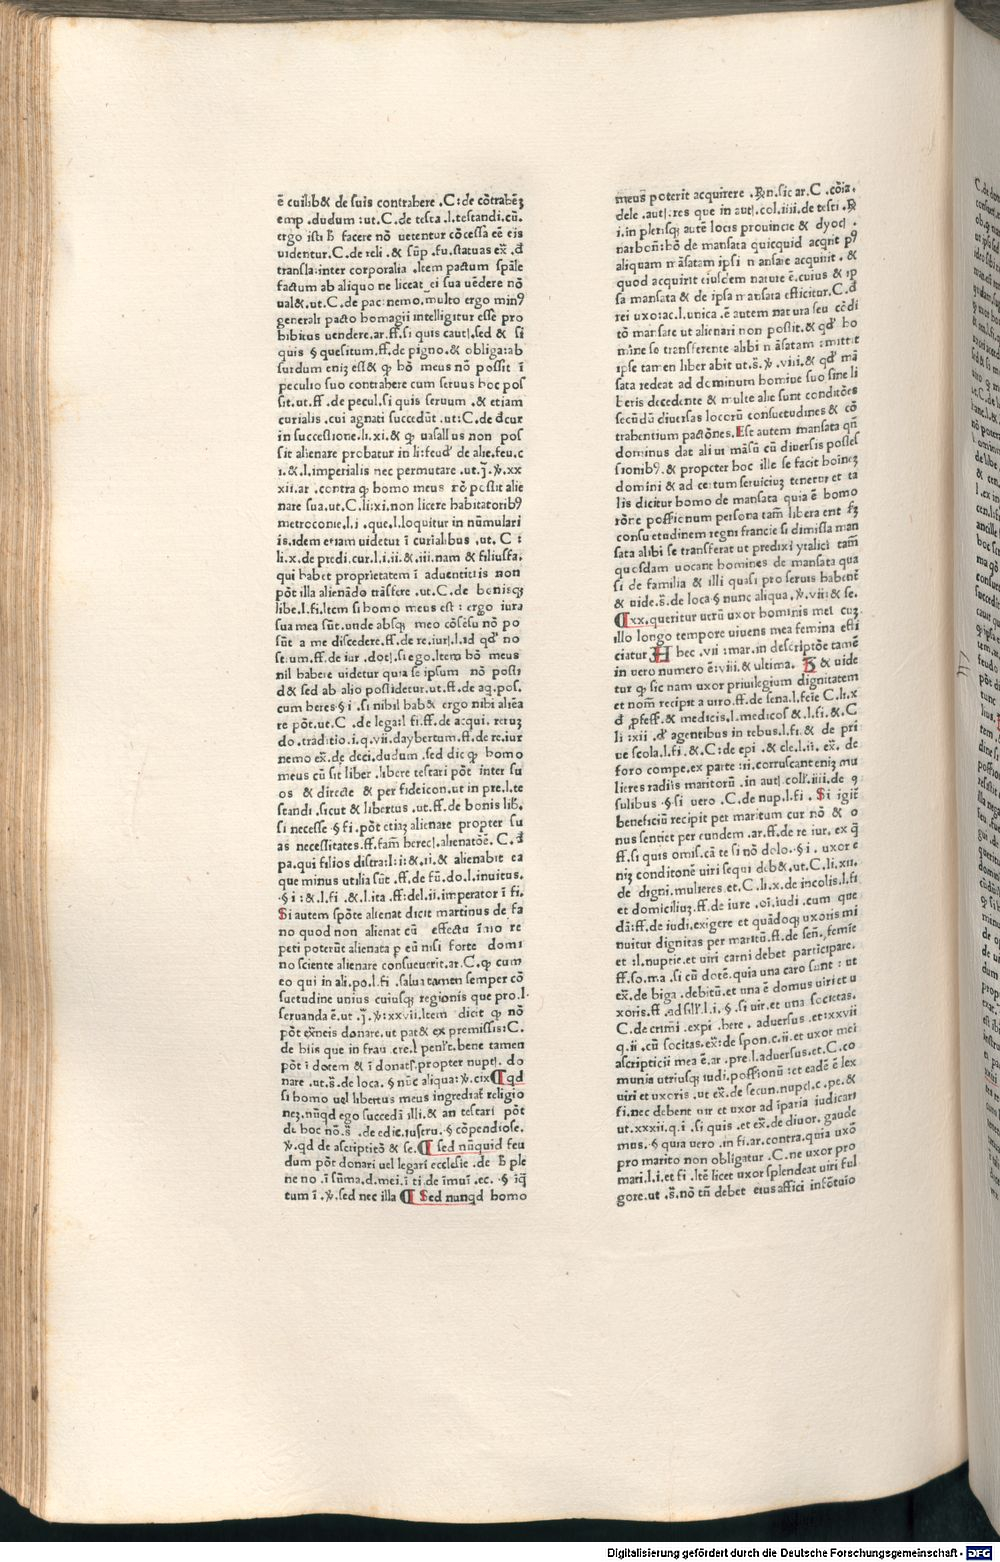 ē cuilib& de suis contrabere .C:de cōtrabēʒ
emp .dudum :ut.C.de testa .l.testandi.cū.
ergo isti ħ facere nō uetentur cōcessa eē eis
uidentur.C.de reli .& sūp .fu.statuas ex̄ .đ
transla:inter corporalia .Item pactum spāle
factum ab aliquo ne liceat ei sua uēdere nō
ual&.ut.C.de pac:nemo.multo ergo minꝰ
generali pacto homagii intelligitur esse pro
hibitus uendere.ar.ff.si quis caut.l.sed & si
quis § quesitum.ff.de pigno.& obliga:ab
surdum eniʒ est& ꝙ hō meus nō possit ī
peculio suo contrahere cum seruus hoc pos
sit.ut.ff .de pecul.si quis seruum .& etiam
curialis .cui agnati succedūt .ut:C.de đcur
in successione.li.xi.& ꝙ uasallus non pos
sit alienare probatur in li:feud' de alie.feu.c
i.&.l.imperialis nec permutare .ut.j̄.ꝟ.xx
xii.ar .contra ꝙ homo meus nō possit alie
nare sua.ut.C.li:xi.non licere habitatoribꝰ
metrocomie.l.i .que.l.loquitur in nūmulari
is.idem etiam uidetur ī curialibus .ut. C :
li.x.de predi.cur.l.i.ii.&.iii.nam & filiusfa.
qui habet proprietatem ī aduentitiis non
pōt illa alienādo trāsfere .ut.C.de bonisqʒ
libe.l.fi.Item si homo meus est : ergo iura
sua mea sūt.unde absqʒ meo cōsēsu nō po
sūt a me discedere.ff.de re.iur.l.id qd' no
strum.ff.de iur .dot.l.si ego.Item hō meus
nil habere uidetur quia se ipsum nō possi
d& sed ab alio possidetur.ut.ff.de aq.pos.
cum heres § i .si nihil hab& ergo nihi aliēa
re pōt.ut.C .de lega:l fi.ff.de acqui. reruʒ
do.traditio.i.q.vii.daybertum.ff.de re.iur
nemo ex̄.de deci.dudum .sed dic ꝙ homo
meus cū sit liber .libere testari pōt inter su
os & directe & per fideicon.ut in pre.l.te
standi .sicut & libertus .ut.ff.de bonis lib̄.
si necesse § fi .pōt etiaʒ alienare propter su
as necessitates.ff.fam̄ herec.l.alienatōē. C.đ
pa.qui filios distra:l:ii:&.ii.& alienabit ea
que minus utilia sūt .ff.de fū.do.l.inuitus.
.§ i : &.l.fi .&.l.ita .ff:del.ii.imperator ī fi.
Si autem spōte alienat dicit martinus de fa
no quod non alienat cū effectu īmo re
peti poterūt alienata p eū nisi forte domi
no sciente alienare consueuerit.ar.C.ꝙ cum
eo qui in ali.po.l.fi .salua tamen semper cō
suetudine unius cuiusqʒ regionis que pro.l.
seruanda ē.ut .j̄.ꝟ:xxvii.Item dicit ꝙ nō
pōt exīneis donare.ut pat& ex premissis:C.
de hiis que in frau .cre.l penl't.bene tamen
pōt ī dotem & ī donatō.propter nupt.l. do
nare .ut.s̄.de loca. § nūc aliqua:ꝟ.cix ¶ qd
si homo uel libertus meus ingrediat' religio
neʒ.nūqd ego succedā illi.& an testari pōt
de hoc nō.s̄ .de edic.iuseru.§ cōpendiose.
ꝟ.qd de ascriptitō & se. ¶ sed nūquid feu
dum pōt donari uel legari ecclesie .de ħ ple
ne no .ī sūma.d.mei.ī ti.de īmuī .ec. § iq̄
tum ī .ꝟ.sed nec illa ¶ Sed nunqd homo
meus poterit acquirere .℞n.sic ar.C .cōia.
dele .aut.l.res que in aut.l.col.iiii.de testi .℞
i.in plerisqʒ autē locis prouincie & dyoc.l .
narbon̄:hō de mansata quicquid acqrit pꝰ
aliquam māsatam ipsi mansate acquirit . &
quod acquirit eiusdem nature ē.cuius & ip
sa mansata & de ipsa mansata efficitur.C.đ
rei uxo:ac.l.unica .ē autem natura seu cōdi
tō mansate ut alienari non possit.& qd' ho
mine se transferente alibi māsatam amittit
ipse tamen liber abit ut.s̄.ꝟ .viii.& qd' mā
sata redeat ad dominum homine suo sine li
beris decedente & multe alie sunt conditōes
secūdū diuersas locorū consuetudines & cō
trahentium pactōnes.Est autem mansata qn̄
dominus dat alicui māsū cū diuersis posses
sionibꝰ.& propter hoc ille se facit hoīneʒ
domini & ad certum seruiciuʒ tenetur et ta
lis dicitur homo de mansata quia ē homo
rōne possessionum persona tam̄ libera erit sʒ
consuetudinem regni francie si dimissa man
sata alibi se transferat ut predixi ytalici tam̄
quosdam uocant homines de mansata qua
si de familia & illi quasi pro seruis habent̄
& uide.s̄.de loca § nunc aliqua.ꝟ.vii:& se.
¶ xx.queritur utrū uxor hominis mei cuʒ
illo longo tempore uiuens mea femina effi
ciatur Hec .vii :mar.in descriptōe tamē
in uero numero ē:viii.& ultima. ℞ & uide
tur ꝙ sic nam uxor priuilegium dignitatem
et nom̄ recipit a uiro.ff.de sena.l.feīe C.li.x
đ pfess̄.& medicis.l.medicos &.l.fi.&.C
li :xii .đ agentibus in rebus.l.fi.& de pri
ue scola.l.fi .&.C:de epi .& cle.l.ii. ex̄. de
foro compe.ex parte :ii.corruscant eniʒ mu
lieres radiis maritorū .in aut.l coll'.iiii.de 9
sulibus .§.si uero .C.de nup.l.fi . Si igit̄
beneficiū recipit per maritum cur nō & o
nus sentiet per eundem .ar.ff.de re iur. ex q̄
ff.si quis omis.cā te si nō dolo. § i . uxor e
niʒ conditonē uiri sequi deb&.ut.C.li.xii.
de digni.mulieres et.C.li.x.de incolis.l.fi
et domiciliuʒ.ff.de iure .oī.iudi .cum que
dā:ff.de iudi.exigere et quādoqʒ uxoris mi
nuitur dignitas per maritū.ff.de sen̄ .femie
et :l.nuptie.et uiri carni debet participare.
ff.so.ma .si cū dotē.quia una caro sunt : ut
ex̄.de biga .debitū.et una ē domus uiri et u
xoris.ff .ad sill'.l.i. § .si uir.et una societas.
C.de crim̄i .expi .here . aduersus .et:xxvii
q.ii .cū socitas.ex̄:de spon.c.ii.et uxor mei
ascripticii mea ē.ar .pre.l.aduersus.et.C.co
munia utriusqʒ iudi.possionū :et eadē ē lex
uiri et uxoris .ut ex̄.de secun.nupt.l.c.pe.&
fi.nec debent uir et uxor ad īparia iudicari
ut.xxxii.q.i .si quis .et ex̄.de diuor. gaude
mus. § quia uero .in fi.ar.contra.quia uxō
pro marito non obligatur .C.ne uxor pro
mari.l.i.et fi .Itē licet uxor splendeat uiri ful
gore.ut .s̄.nō tn̄ debet eius affici infōtuīo
Digitalisierung gefördert durch die Deutsche Forschungsgemeinschaft - DFG